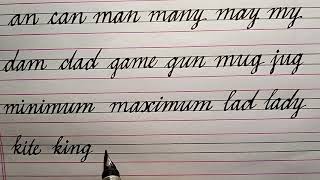 an can man many may my
dam dad game gun mug jug
minimum maximum lad lady
kite king